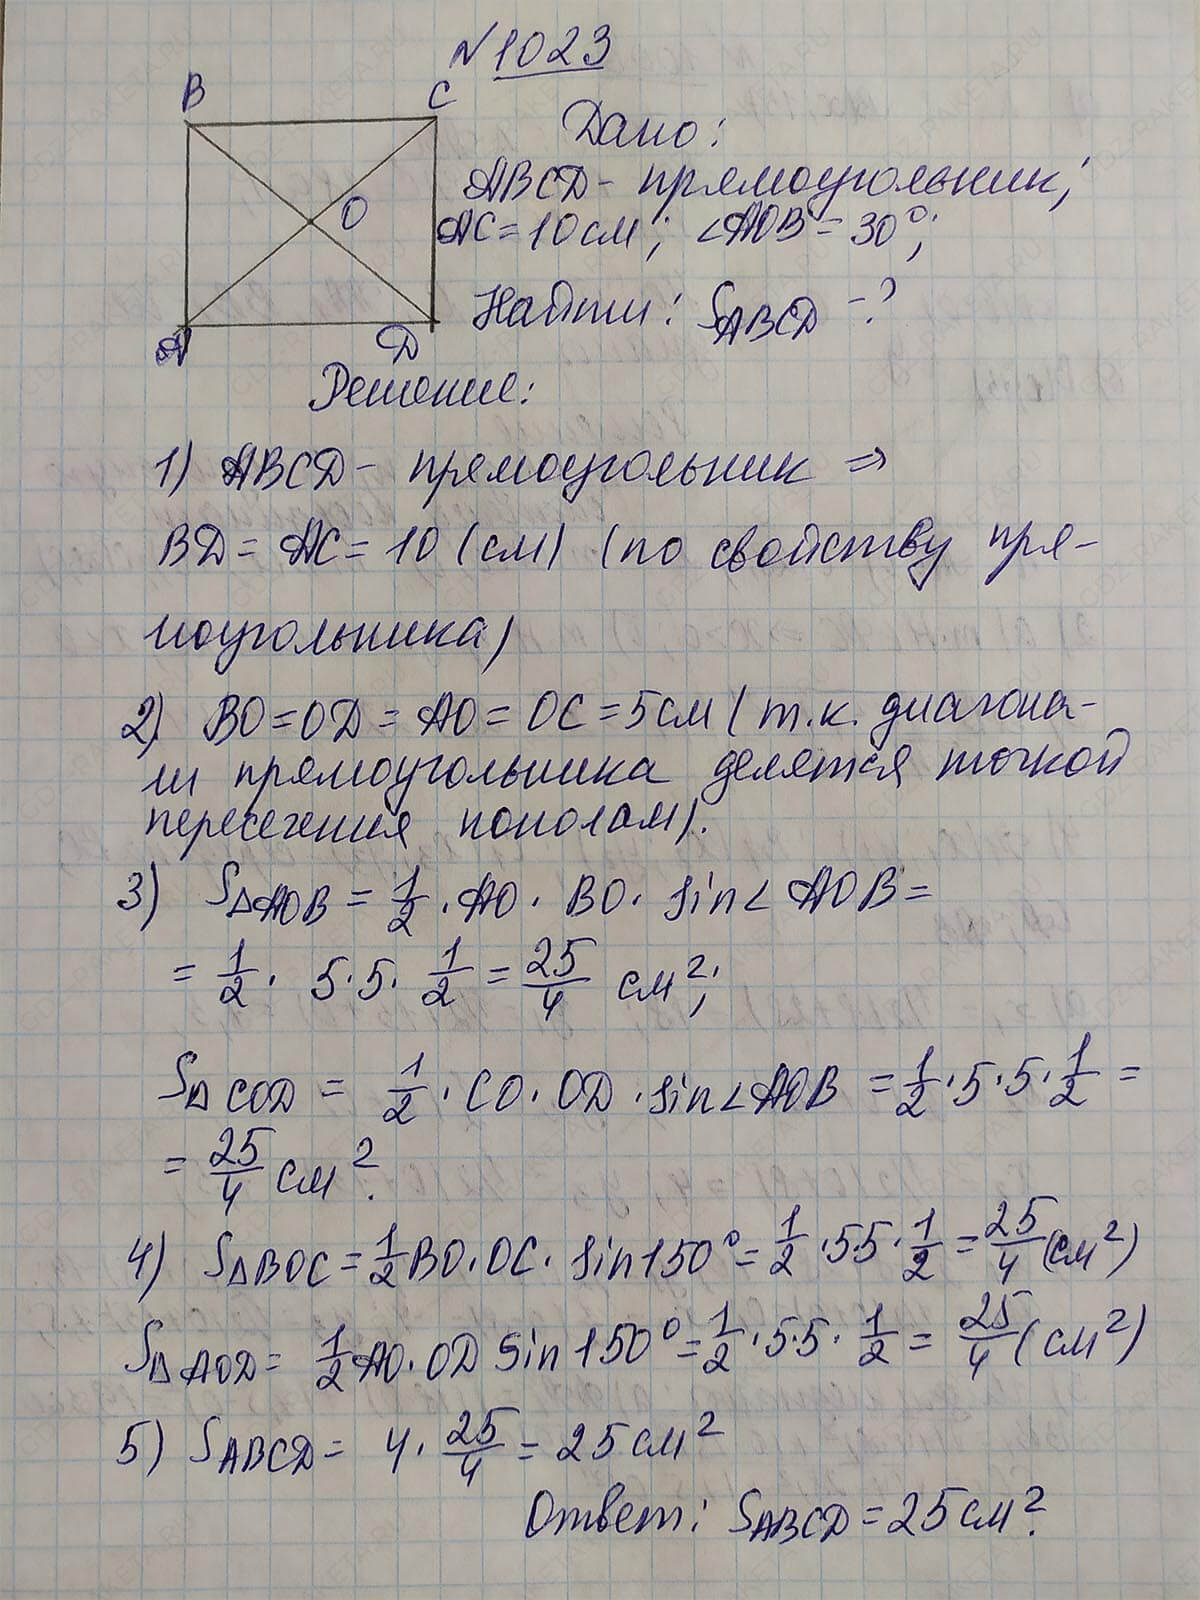 N 1023
B
C
O
A
D
Дано:
ABCD - прямоугольник;
AC = 10 см; ∠AOB = 30°;
Найти: S_ABCD - ?
Решение:
1) ABCD - прямоугольник ⇒
BD = AC = 10 (см) (по свойству пря-
моугольника)
2) BO = OD = AO = OC = 5 см (т.к. диагона-
ли прямоугольника делятся точкой
пересечения пополам).
3) S_ΔAOB = 1/2 · AO · BO · sin∠AOB =
= 1/2 · 5·5 · 1/2 = 25/4 см²;
S_ΔCOD = 1/2 · CO · OD · sin∠AOB = 1/2 · 5 · 5 · 1/2 =
= 25/4 см².
4) S_ΔBOC = 1/2 BO · OC · sin150° = 1/2 · 5·5 · 1/2 = 25/4 (см²)
S_ΔAOD = 1/2 AO · OD sin150° = 1/2 · 5·5 · 1/2 = 25/4 (см²)
5) S_ABCD = 4 · 25/4 = 25 см²
Ответ: S_ABCD = 25 см².